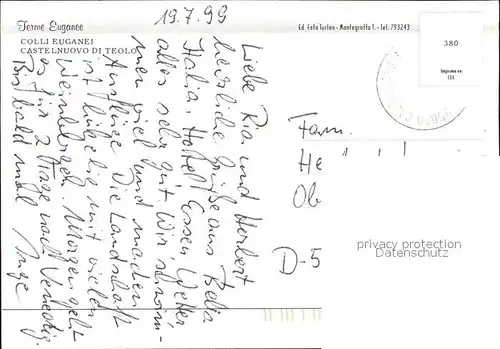 Terme Euganee
COLLI EUGANEI
CASTELNUOVO DI TEOLO
19.7.99
Ed. Foto Turlon - Montegrotto T. - Tel. 793243
380
Imprime en
Liebe Ria und Herbert
herrliche Grüße aus Bella
Italia. Hotel Essen Wetter
alles sehr gut. Wir schwim-
men viel und machen
Ausflüge. Die Landschaft
ist lieblich mit vielen
Weinbergen. Morgen geht
es für 2 Tage nach Venedig.
Bis bald mal
Inge
Fam.
He
Ob
D-5
privacy protection
Datenschutz